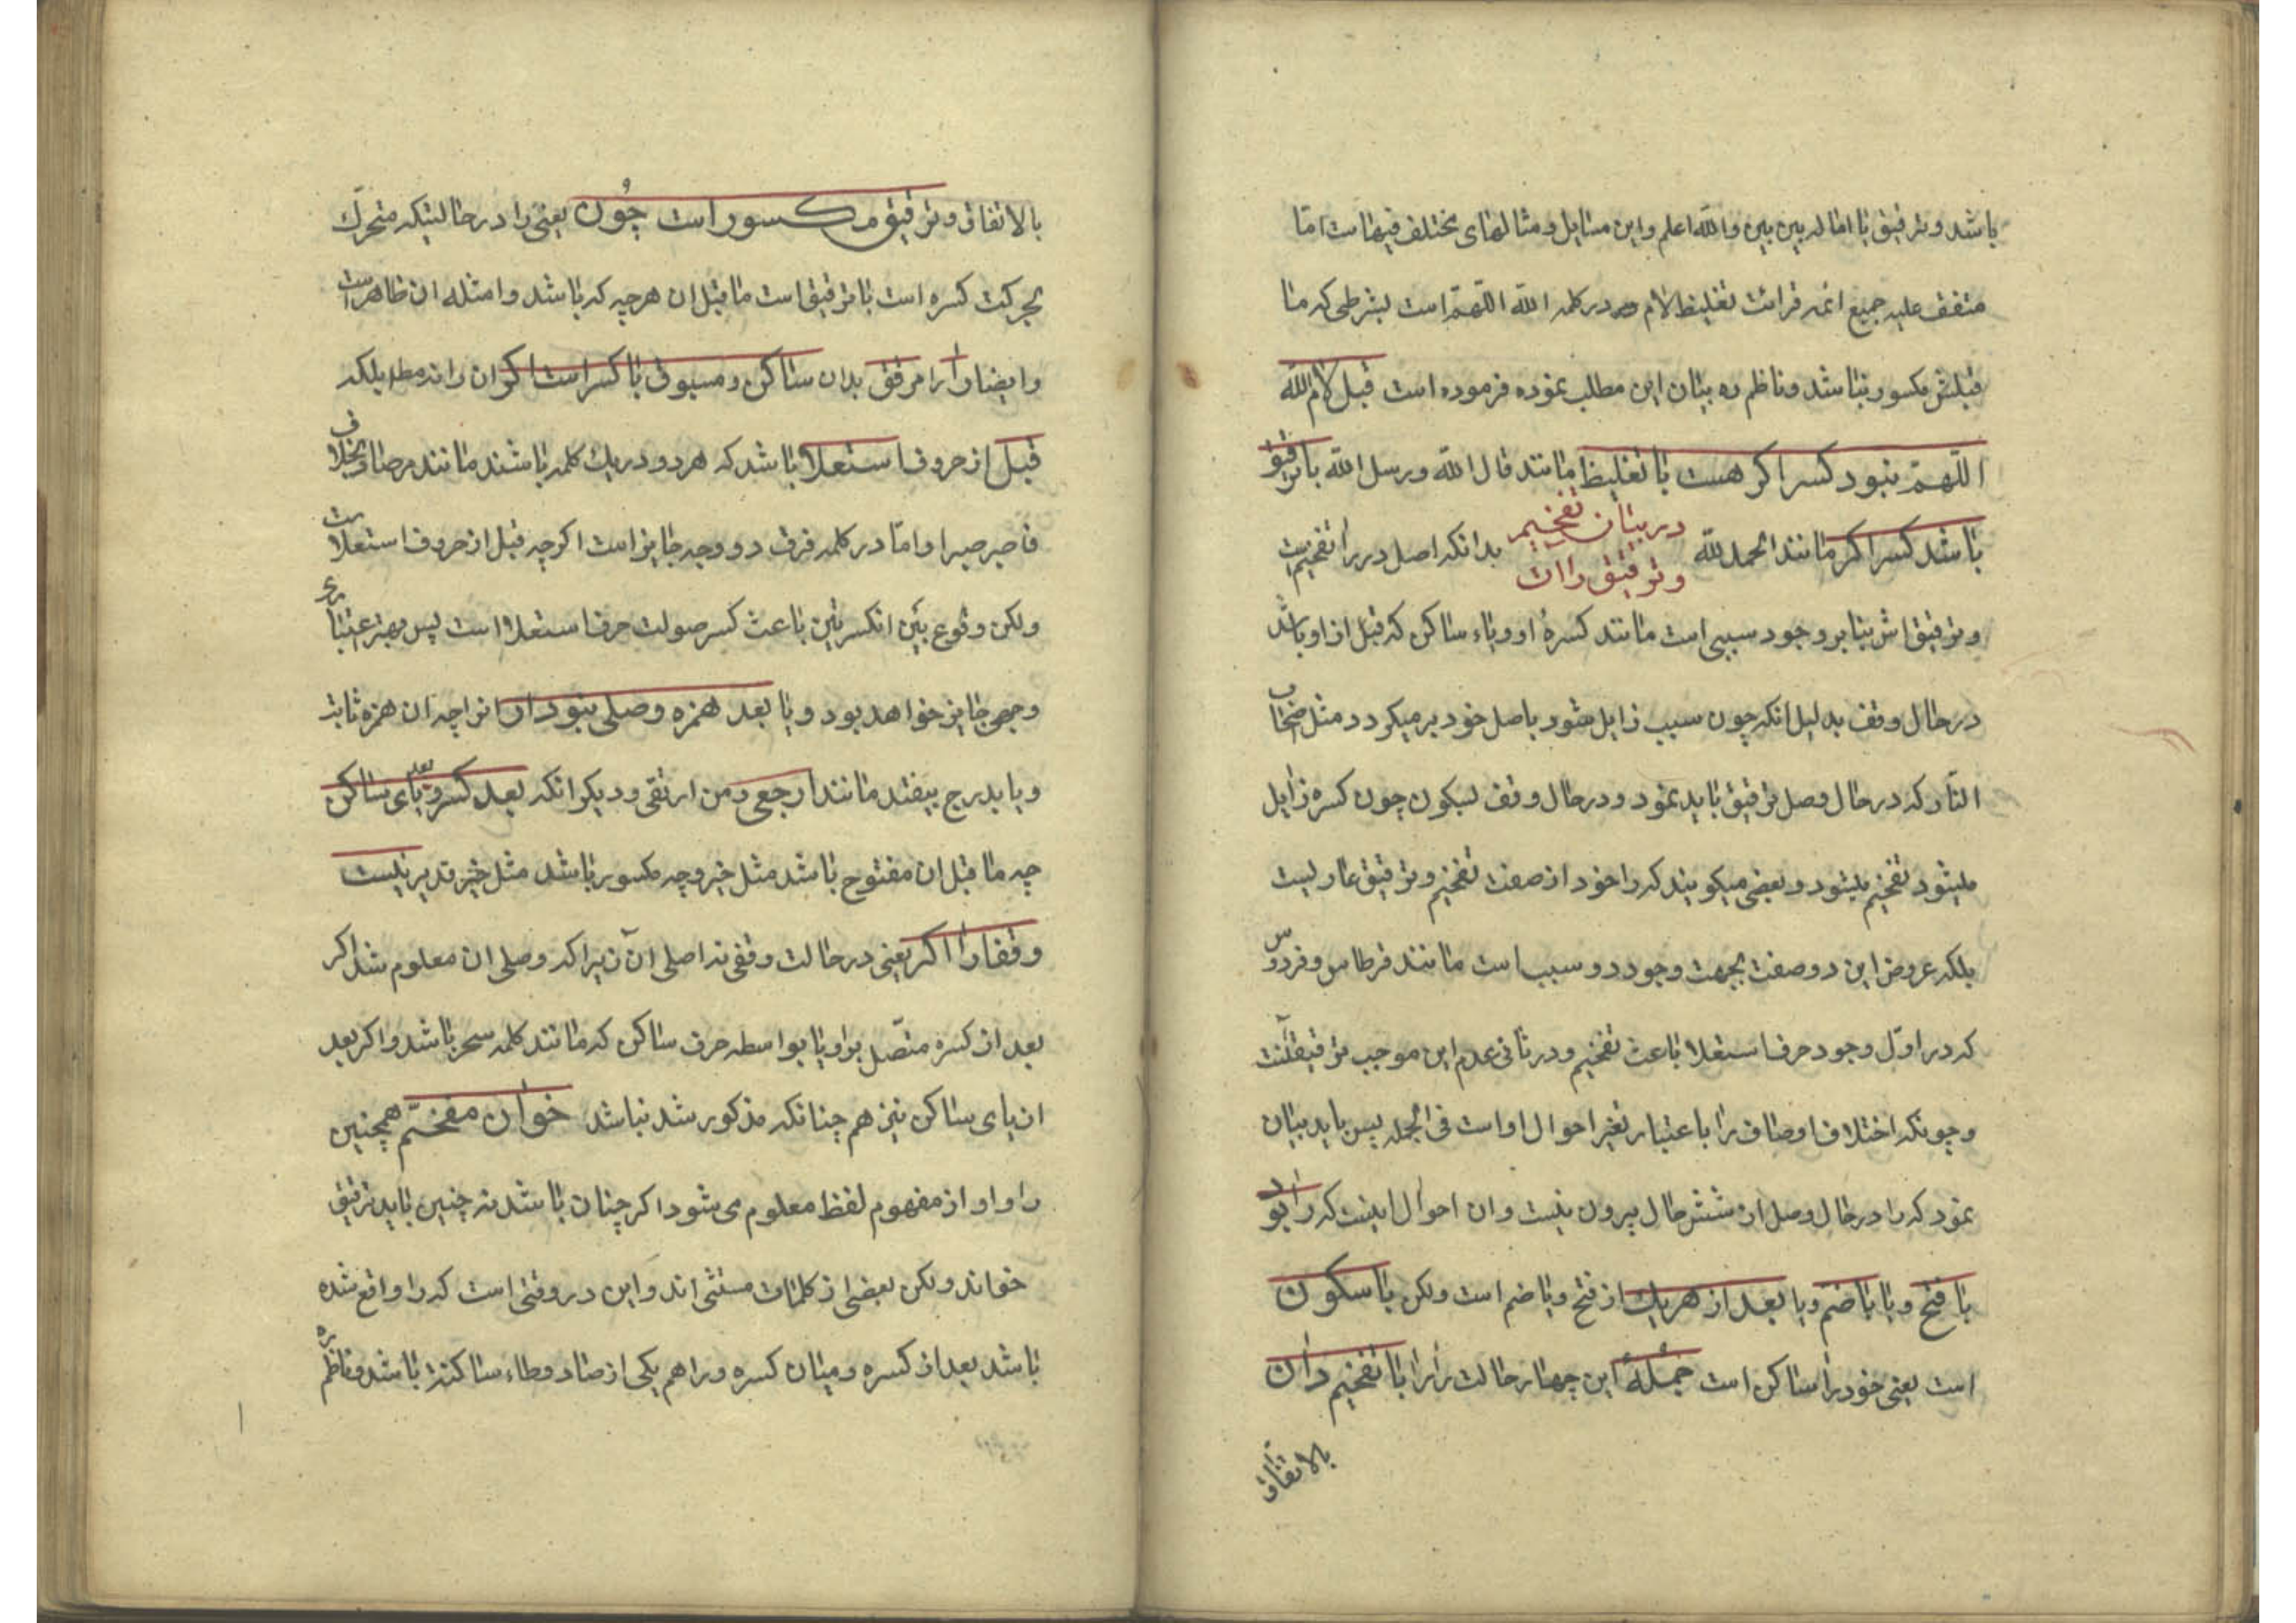 باشد و ترقیق با اماله بین بین و الله اعلم و این مسایل و مثالهای مختلف فیهاست اما
متفق علیه جمیع ائمه قرائت تغلیظ لام در کلمه الله اللهمّ است بشرطی که ما
قبلش مکسور نباشد و ناظم ره بیان این مطلب نموده فرموده است قبل لام الله
اللّهمّ نبود کسر اکر هست با تغلیظ مانند قال الله و رسل الله با ترقیق
باشد کسر اکر مانند الحمد لله
در بیان تفخیم
و ترقیق راات
بدانکه اصل در را تفخیم است
و ترقیق اش بنا بر وجود سببی است مانند کسرهٔ او و یاء ساکن که قبل از او باشد
در حال وقف بدلیل انکه چون سبب زایل شود باصل خود بر میکردد مثل
النّار که در حال وصل ترقیق باید نمود و در حال وقف بسکون چون کسره زایل
میشود تفخیم میشود و بعضی میکویند که را خود از صفت تفخیم و ترقیق عاریست
بلکه عروض این دو صفت بجهت وجود دو سبب است مانند قرطاس و فردوس
که در اوّل وجود حرف استعلا باعث تفخیم و در ثانی عدم این موجب ترقیق
و چونکه اختلاف اوصاف را باعتبار تغیر احوال او است فی الجمله پس باید بیان
نمود که را در حال وصل از شش حال بیرون نیست و ان احوال اینست که را بود
با فتح و یا با ضم و یا بعد از هریک از فتح و یا ضم است ولکن با سکون
است یعنی خود را ساکن است جملهٔ این چهار حالت را را با تفخیم دان
بالاتفاق
بالاتفاق و ترقیق مکسور است چون یعنی را در حالیتکه متحرّک
بحرکت کسره است با ترقیق است ماقبل ان هرچه که باشد و امثله ان ظاهر است
و ایضا را را مرقق بدان ساکن و مسبوق با کسر است اکر ان را نه مطر بلکه
قبل از حروف استعلا باشد که هر دو در یک کلمه باشند مانند مرصاد و بخلاف
فاصبر صبرا و امّا در کلمه فرق دو وجه جایز است اکرچه قبل از حروف استعلا است
ولکن وقوع بین الکسرتین باعث کسر صولت حرف استعلا است پس بهر
وجهی جایز خواهد بود و یا بعد همزه وصلی نبود ار انرا چه ان همزه ثابت
و یا بدرج بیفتد مانند ارجعی و من ارتقی و دیکر انکه بعد کسر و بعد یای ساکن
چه ما قبل ان مفتوح باشد مثل خیر و چه مکسور باشد مثل خبیر قدیر نیست
وقفا را اکر یعنی در حالت وقفی نه اصلی ان زیرا که وصلی ان معلوم شد اکر
بعد از کسره متّصل براو یا بواسطه حرف ساکن که مانند کلمه سحر باشد و اکر بعد
ان یای ساکن نیز هم چنانکه مذکور شد نباشد خوان مفخّم همچنین
را و او از مفهوم لفظ معلوم می شود اکر چنان باشد نه چنین باید ترقیق
خواند ولکن بعضی از کلمات مستثنی اند و این در وقتی است که را واقع شده
باشد بعد از کسره و میان کسره و را هم یکی از صاد و طاء ساکنه باشد و ناظم ره